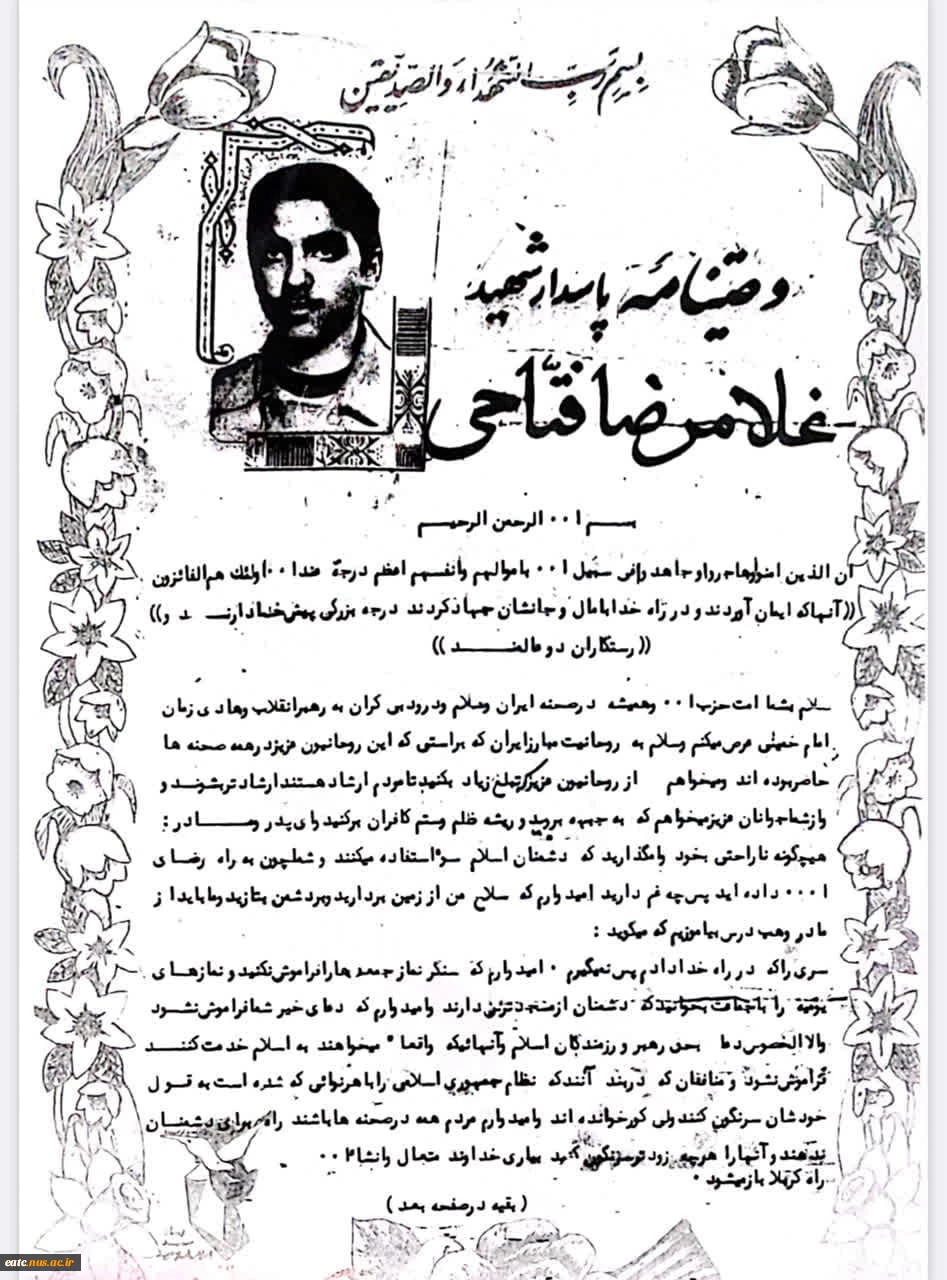 بسم رب الشهداء والصدیقین
وصیتنامه پاسدار شهید
غلامرضا فتاحی
بسم ا۰۰ الرحمن الرحیم
ان الذین امنوا وهاجروا و جاهدوا فی سبیل ا۰۰ باموالهم وانفسهم اعظم درجة عندا۰۰ اولئك هم الفائزون
((آنهاکه ایمان آوردند و در راه خدا با مال وجانشان جهاد کردند درجه بزرگی پیش خدا دارنـــد و))
((رستگاران دو عالمنـــد))
سلام بشما امت حزب ا۰۰ وهمیشه درصحنه ایران وسلام ودرود بی کران به رهبرانقلاب وهادی زمان
امام خمینی عرض میکنم وسلام به روحانیت مبارزایران که براستی که این روحانیون عزیز درهمه صحنه ها
حاضربوده اند ومیخواهم از روحانیون عزیزکه تبلیغ زیاد بکنیدتامردم ارشاد هستند ارشاد تر بشوند و
وازشماجوانان عزیزمیخواهم که به جبهه بروید و ریشه ظلم وستم کافران برکنید وای پدر ومـــادر :
هیچگونه ناراحتی بخود وامگذارید که دشمنان اسلام سوءاستفاده میکنند و شماچون به راه رضای
ا۰۰۰ داده اید پس چه غم دارید امیدوارم که سلاح من از زمین بردارید وبردشمن بتازید وما باید از
مادر وهب درس بیاموزیم که میگوید :
سری راکه در راه خدا دادم پس نمیگیرم ۰ امیدوارم که سنگر نماز جمعه هارافراموش نکنید و نمازهای
یومیه را باجماعت بخوانیدکه دشمنان ازمسجد ترس دارند وامیدوارم که دعای خیر شمافراموش نشود
والا الخصوص دعا بحق رهبر و رزمندگان اسلام وآنهائیکه واقعا" میخواهند به اسلام خدمت کننـــد
فراموش نشود و منافقان که دربند آنندکه نظام جمهوری اسلامی را باهرنوائی که شده است به قـــول
خودشان سرنگون کنند ولی کورخوانده اند وامیدوارم مردم همه درصحنه ها باشند راه برای دشمنـــان
ندهند و آنها را هرچه زود تر سرنگون کنید بیاری خداوند متعال وانشا۰۰
راه کربلا بازمیشود ۰
( بقیه درصفحه بعد )
eatc.nus.ac.ir